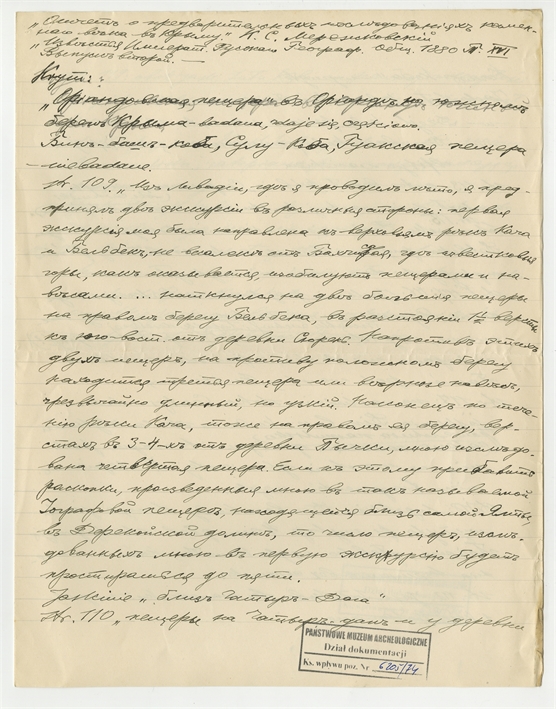 „Отчетъ о предварительныхъ изслѣдованiяхъ камен-
наго вѣка въ Крыму." К. С. Мережковскiй
„Извѣстiя Императ. Русскаго Географ. Общ. 1880 т. XVI
Выпускъ второй. —
Крым:
пещера" въ
берегъ Крыма - badana, zdaje się, częściowo.
Бинъ-башъ-коба, Сулу-Коба, Туакская пещера
— niebadane.
Str. 109 „Изъ Ливадiи, гдѣ я проводилъ лѣто, я пред-
принялъ двѣ экскурсiи въ различныя стороны: первая
экскурсiя моя была направлена къ верховьямъ рѣкъ Кача
и Бельбекъ, не вдалекѣ отъ Бахчисарая, гдѣ известковыя
горы, какъ оказывается, изобилуютъ пещерами и на-
вѣсами. ... наткнулся на двѣ большiя пещеры
на правомъ берегу Бельбека, въ разстоянiи 1½ версты
къ юго-вост. отъ деревни Сюрень. Напротивъ этихъ
двухъ пещеръ, на противуположномъ берегу
находится третья пещера или вѣрнѣе навѣсъ,
чрезвычайно длинный, но узкiй. Наконецъ по тече-
нiю рѣки Кача, тоже на правомъ ея берегу, вер-
стахъ въ 3-4-хъ отъ деревни Пычки, мною изслѣдо-
вана четвёртая пещера. Если къ этому прибавить
раскопки, произведенныя мною въ такъ называемой
Іографовой пещерѣ, находящейся близь самой Ялты,
въ Дерекойской долинѣ, то число пещеръ, изслѣ-
дованныхъ мною въ первую экскурсiю будетъ
простираться до пяти.
Jaskinie „близъ Чатыръ-Дага"
Str. 110 „пещеры на Чатыръ-дагѣ и у деревни
PAŃSTWOWE MUZEUM ARCHEOLOGICZNE
Dział dokumentacji
Ks. wpływu poz. Nr 6205/74